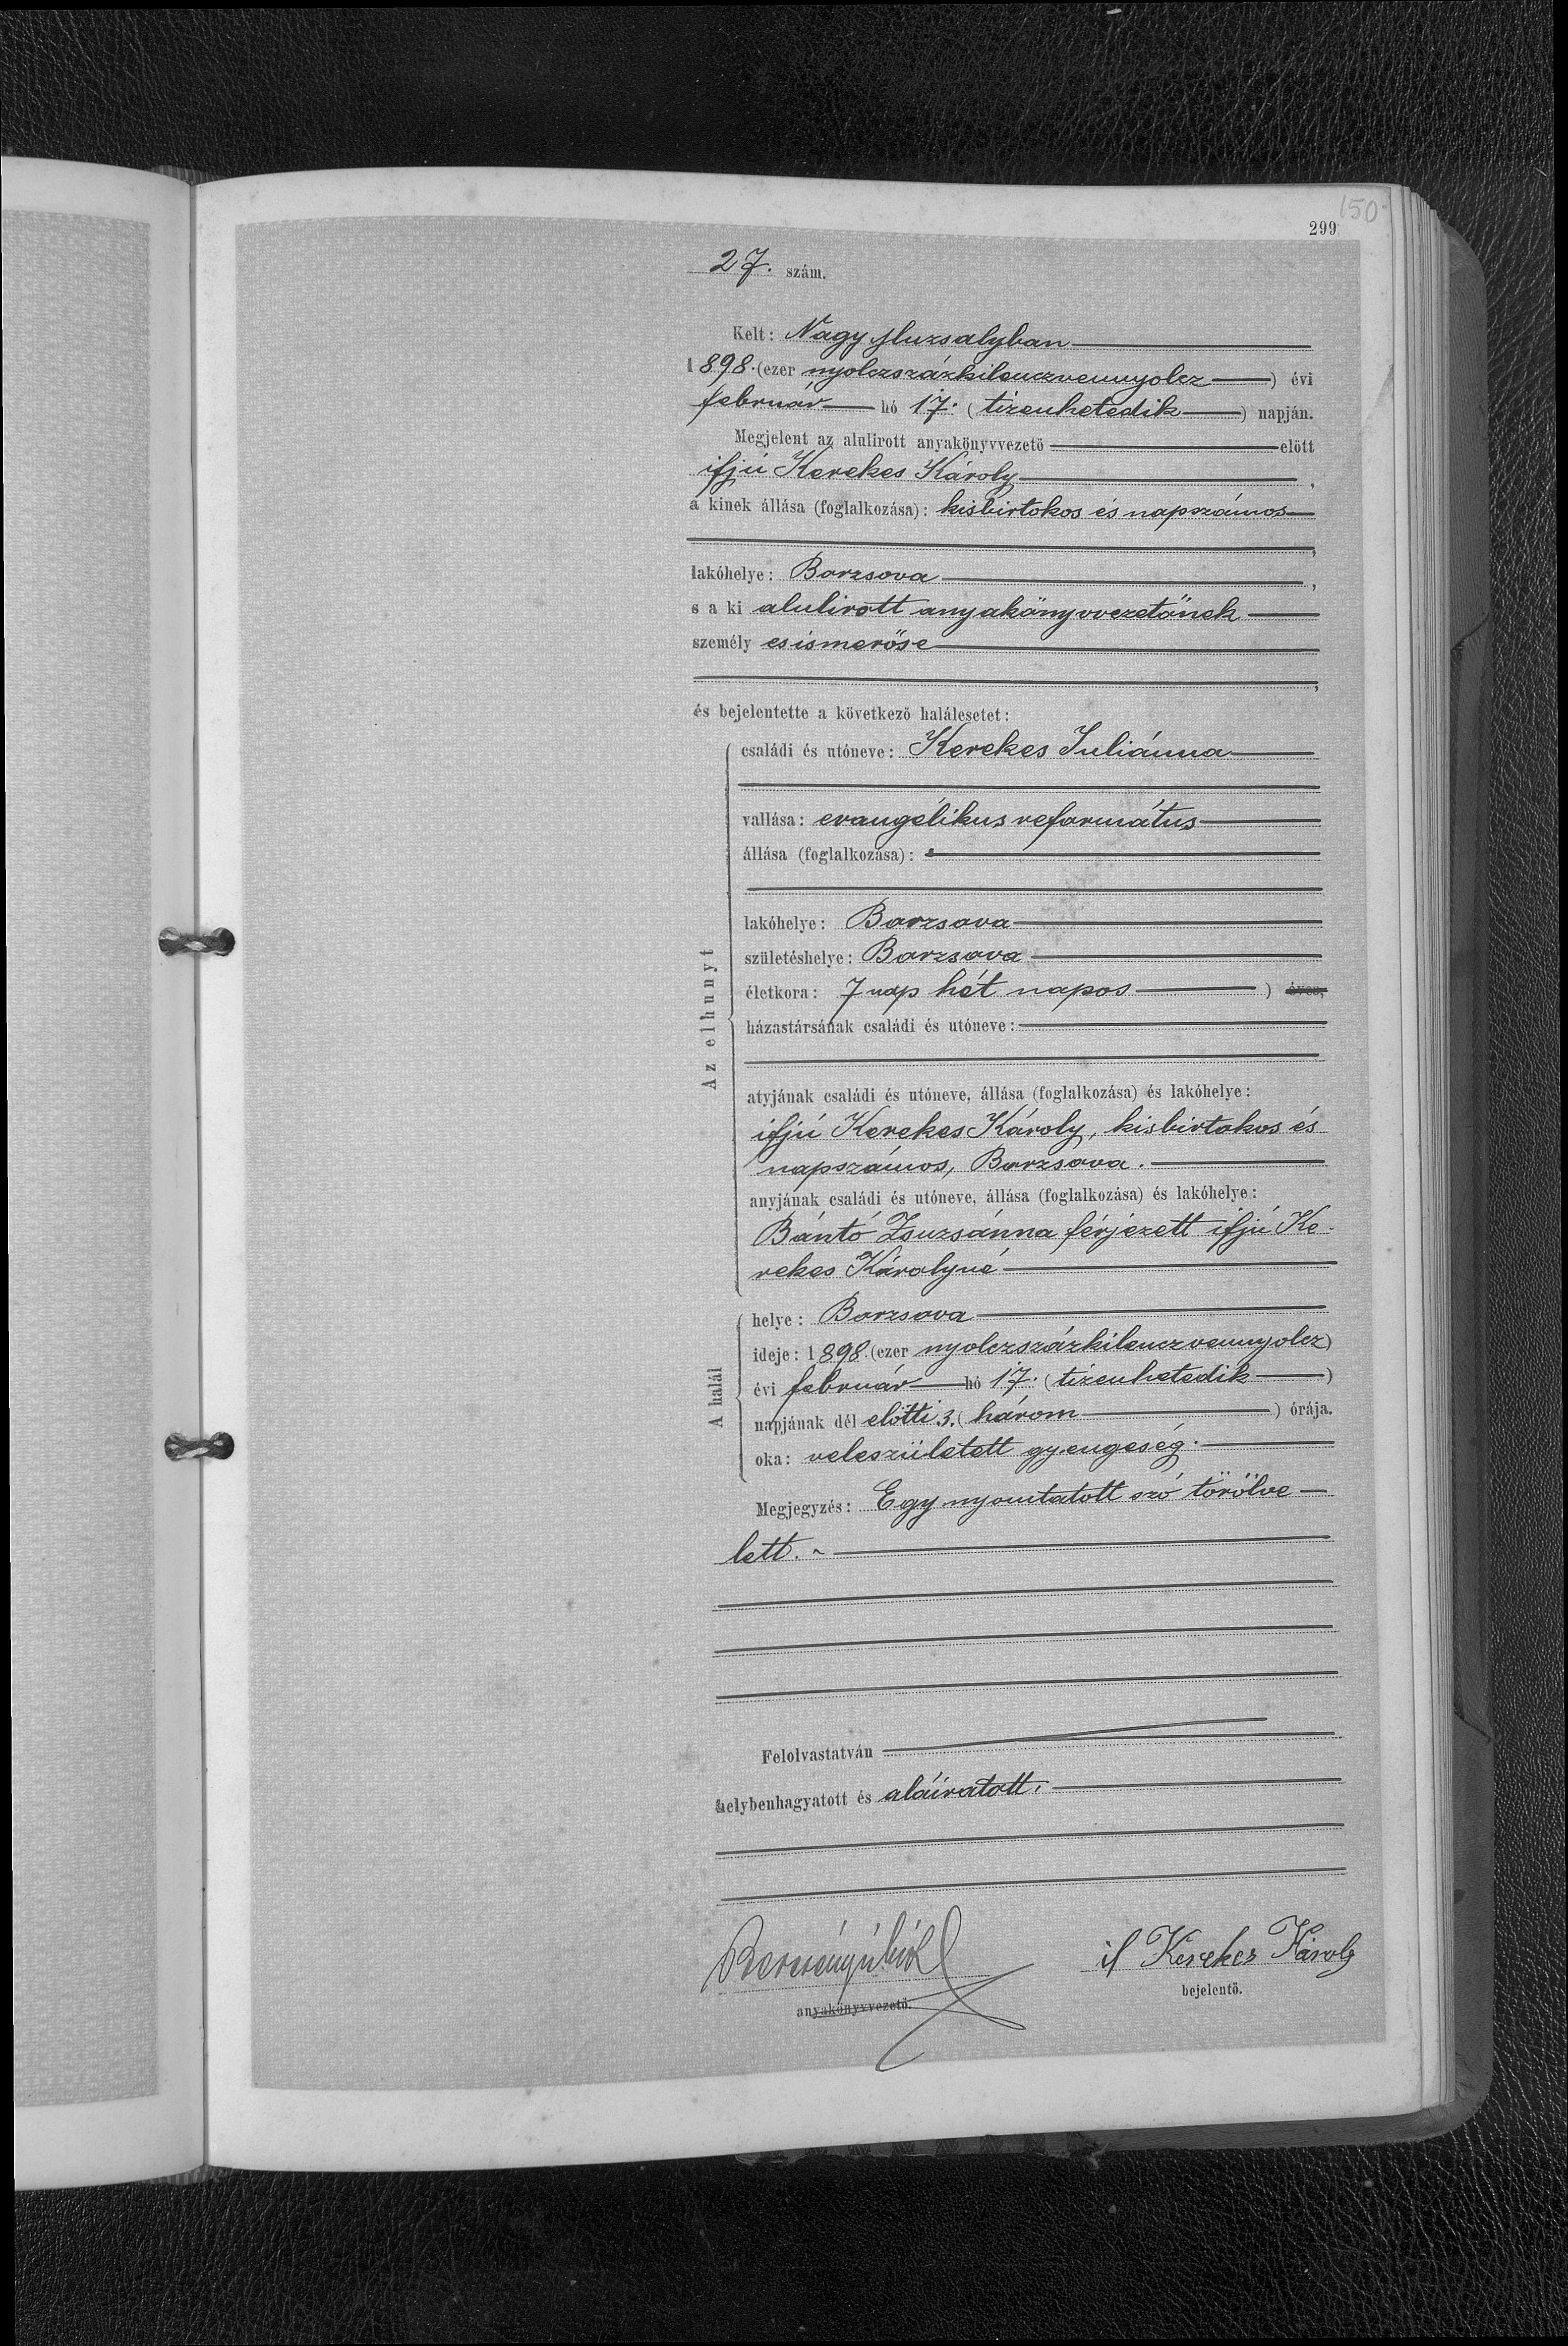 150
299
27. szám.
Kelt: Nagy Muzsalyban
1898. (ezer nyolczszázkilenczvennyolcz) évi
február hó 17. (tizenhetedik) napján.
Megjelent az alulirott anyakönyvvezető előtt
ifjú Kerekes Károly,
a kinek állása (foglalkozása): kisbirtokos és napszámos
,
lakóhelye: Borzsova,
s a ki alulirott anyakönyvvezetőnek
személyes ismerőse
,
és bejelentette a következő halálesetet:
Az elhunyt
családi és utóneve: Kerekes Juliánna
vallása: evangélikus református
állása (foglalkozása):
lakóhelye: Borzsova
születéshelye: Borzsova
életkora: 7 nap hét napos) éves,
házastársának családi és utóneve:
atyjának családi és utóneve, állása (foglalkozása) és lakóhelye:
ifjú Kerekes Károly, kisbirtokos és
napszámos, Borzsova.
anyjának családi és utóneve, állása (foglalkozása) és lakóhelye:
Bántó Zsuzsánna férjezett ifjú Ke-
rekes Károlyné
A halál
helye: Borzsova
ideje: 1898. (ezer nyolczszázkilenczvennyolcz)
évi február hó 17. (tizenhetedik)
napjának dél előtti 3. (három) órája.
oka: veleszületett gyengeség.
Megjegyzés: Egy nyomtatott szó törölve
lett.
Felolvastatván
helybenhagyatott és aláiratott.
if Kerekes Károly
anyakönyvvezető.
bejelentő.